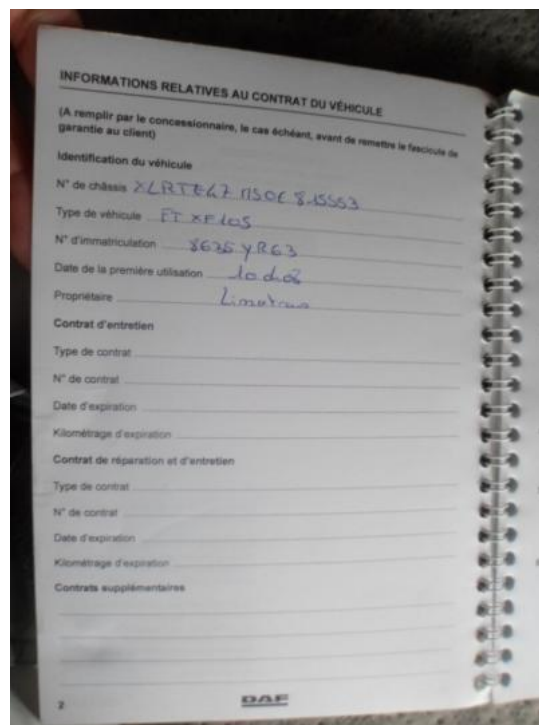 INFORMATIONS RELATIVES AU CONTRAT DU VÉHICULE
(A remplir par le concessionnaire, le cas échéant, avant de remettre le fascicule de
garantie au client)
Identification du véhicule
N° de châssis
Type de véhicule FT XF105
N° d'immatriculation 8635 YR63
Date de la première utilisation
Propriétaire
Contrat d'entretien
Type de contrat
N° de contrat
Date d'expiration
Kilométrage d'expiration
Contrat de réparation et d'entretien
Type de contrat
N° de contrat
Date d'expiration
Kilométrage d'expiration
Contrats supplémentaires
2 DAF